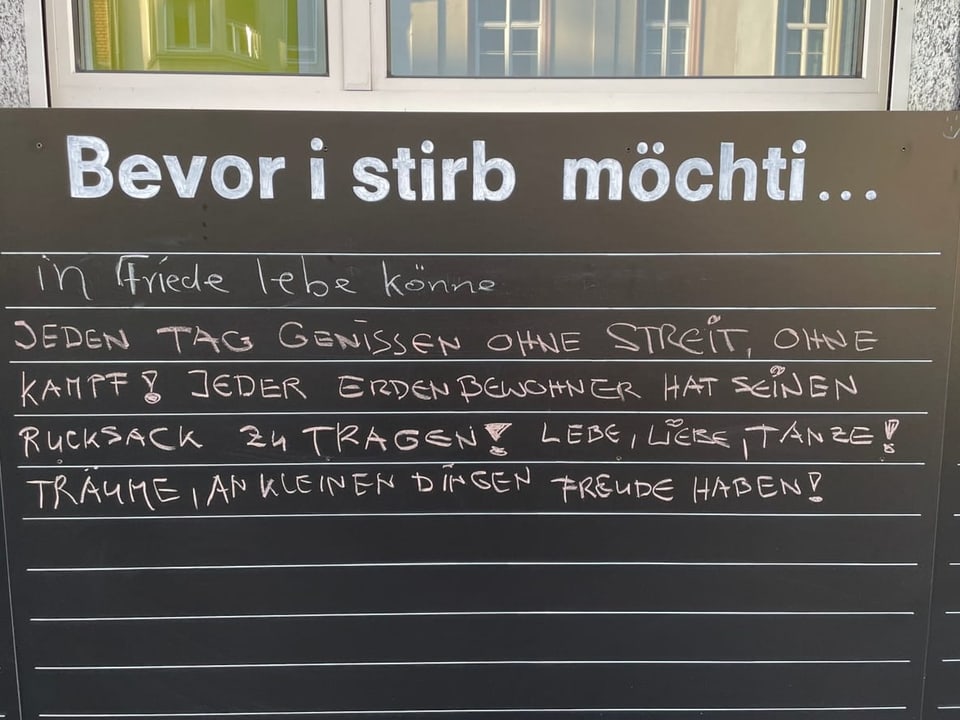 Bevor i stirb möchti...
in Friede lebe könne
JEDEN TAG GENISSEN OHNE STREIT, OHNE
KAMPF! JEDER ERDENBEWOHNER HAT SEINEN
RUCKSACK ZU TRAGEN! LEBE, LIEBE, TANZE!
TRÄUME, AN KLEINEN DINGEN FREUDE HABEN!